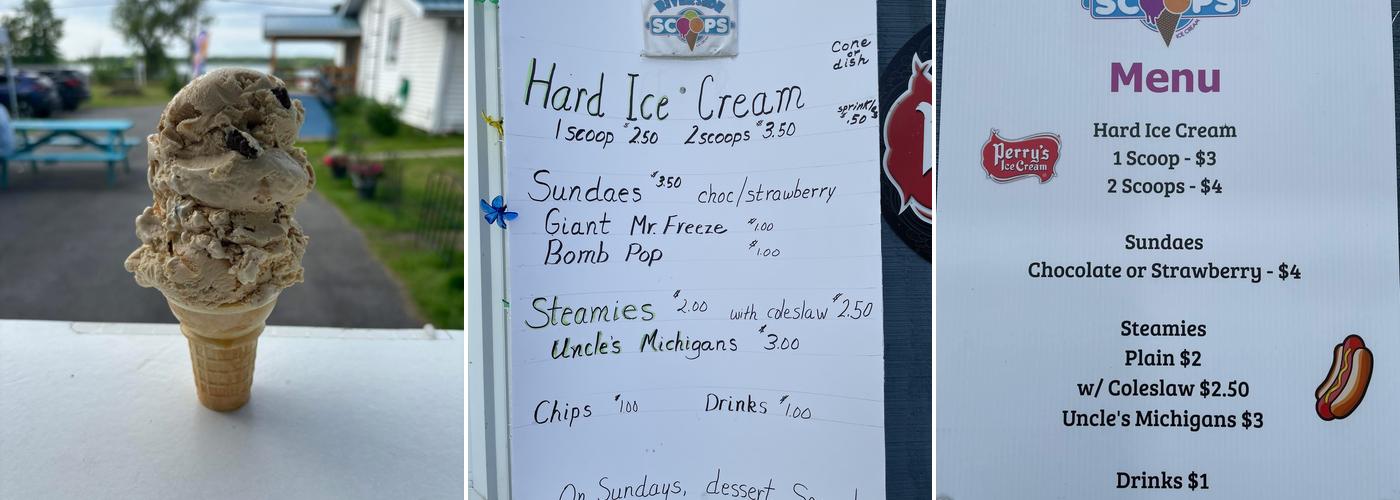 RIVERSIDE
SCOOPS
Cone
or
dish
Hard Ice Cream
sprinkles
.50
1 scoop $2.50 2 scoops $3.50
Sundaes $3.50 choc/strawberry
Giant Mr. Freeze $1.00
Bomb Pop $1.00
Steamies $2.00 with coleslaw $2.50
Uncle's Michigans $3.00
Chips $1.00 Drinks $1.00
On Sundays, dessert
SCOOPS
ICE CREAM
Menu
Perry's
Ice Cream
Hard Ice Cream
1 Scoop - $3
2 Scoops - $4
Sundaes
Chocolate or Strawberry - $4
Steamies
Plain $2
w/ Coleslaw $2.50
Uncle's Michigans $3
Drinks $1